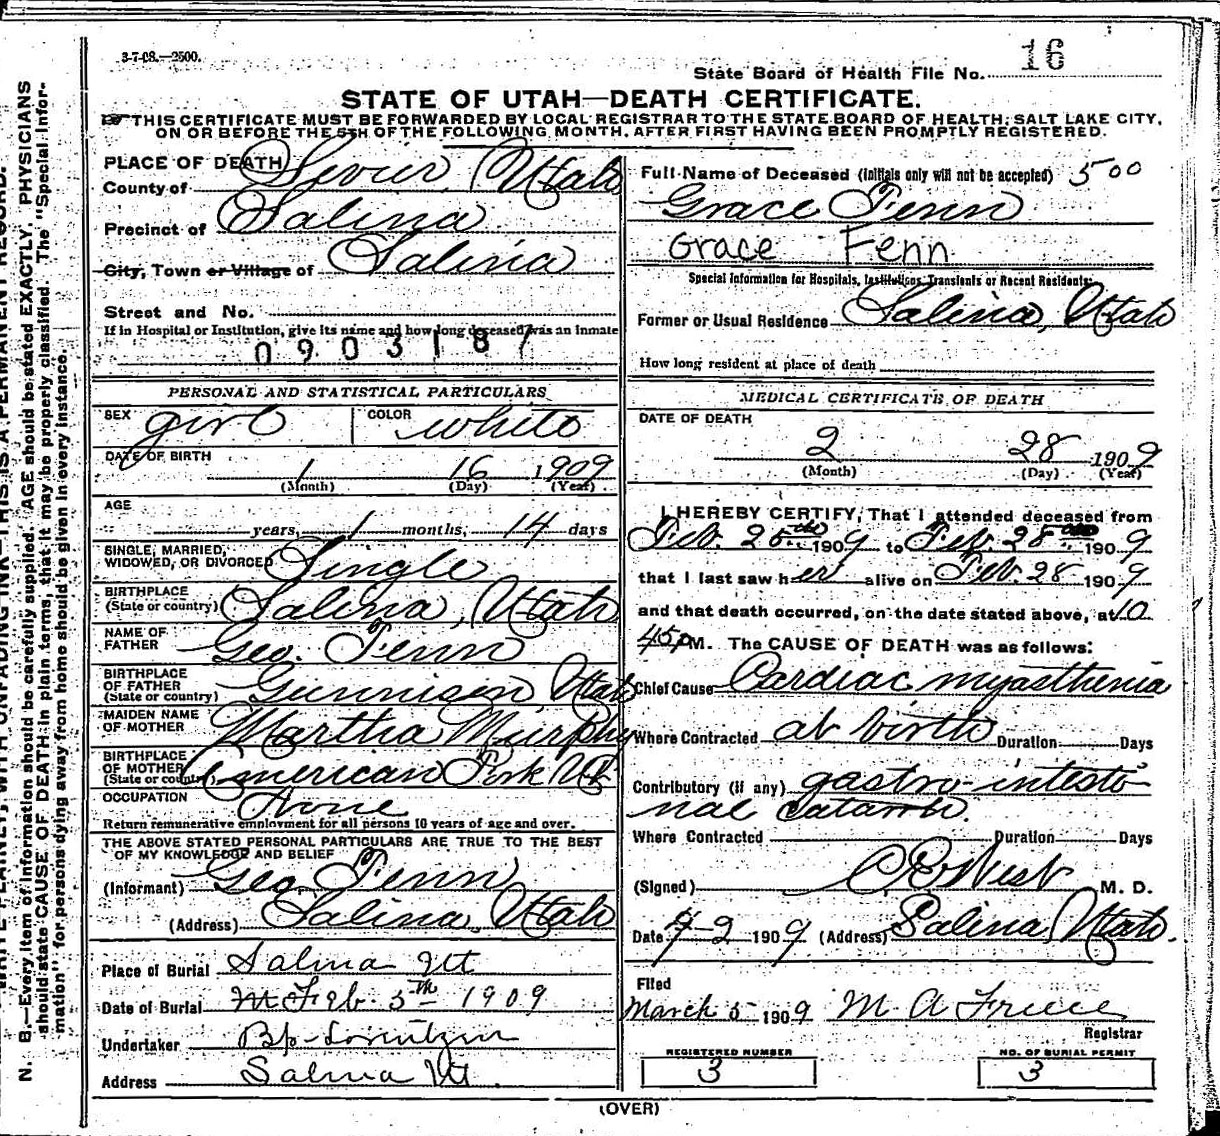 3-7-08.—2500.
State Board of Health File No. 16
STATE OF UTAH—DEATH CERTIFICATE.
THIS CERTIFICATE MUST BE FORWARDED BY LOCAL REGISTRAR TO THE STATE BOARD OF HEALTH, SALT LAKE CITY,
ON OR BEFORE THE 5TH OF THE FOLLOWING MONTH, AFTER FIRST HAVING BEEN PROMPTLY REGISTERED.
PLACE OF DEATH
County of Sevier, Utah
Precinct of Salina
City, Town or Village of Salina
Street and No.
If in Hospital or Institution, give its name and how long deceased was an inmate
0903187
PERSONAL AND STATISTICAL PARTICULARS
SEX girl COLOR white
DATE OF BIRTH
1 16 1909
(Month) (Day) (Year)
AGE
years, 1 months, 14 days
SINGLE, MARRIED,
WIDOWED, OR DIVORCED Single
BIRTHPLACE
(State or country) Salina, Utah
NAME OF
FATHER Geo. Fenn
BIRTHPLACE
OF FATHER
(State or country) Gunnison, Utah
MAIDEN NAME
OF MOTHER Martha Murphy
BIRTHPLACE
OF MOTHER
(State or country) American Fork Ut
OCCUPATION None
Return remunerative employment for all persons 10 years of age and over.
THE ABOVE STATED PERSONAL PARTICULARS ARE TRUE TO THE BEST
OF MY KNOWLEDGE AND BELIEF
(Informant) Geo. Fenn
(Address) Salina, Utah
Place of Burial Salina Ut
Date of Burial Feb. 5th 1909
Undertaker Bp. Lorentzen
Address Salina Ut.
Full Name of Deceased (initials only will not be accepted) 500
Grace Fenn
Grace Fenn
Special information for Hospitals, Institutions, Transients or Recent Residents:
Former or Usual Residence Salina, Utah
How long resident at place of death
MEDICAL CERTIFICATE OF DEATH
DATE OF DEATH
2 28 1909
(Month) (Day) (Year)
I HEREBY CERTIFY, That I attended deceased from
Feb. 28th 1909 to Feb. 28th 1909
that I last saw her alive on Feb. 28 1909
and that death occurred, on the date stated above, at 10
45 P M. The CAUSE OF DEATH was as follows:
Chief Cause Cardiac myasthenia
Where Contracted at birth Duration Days
Contributory (if any) gastro-intesti-
nal Catarrh.
Where Contracted Duration Days
(Signed) West M. D.
Date 1909 (Address) Salina, Utah.
Filed
March 5 1909 M A
Registrar
REGISTERED NUMBER
3
NO. OF BURIAL PERMIT
3
(OVER)
N. B.—Every item of information should be carefully supplied. AGE should be stated EXACTLY. PHYSICIANS
should state CAUSE OF DEATH in plain terms, that it may be properly classified. The "Special Infor-
mation" for persons dying away from home should be given in every instance.
WITH UNFADING INK—THIS IS A PERMANENT RECORD.